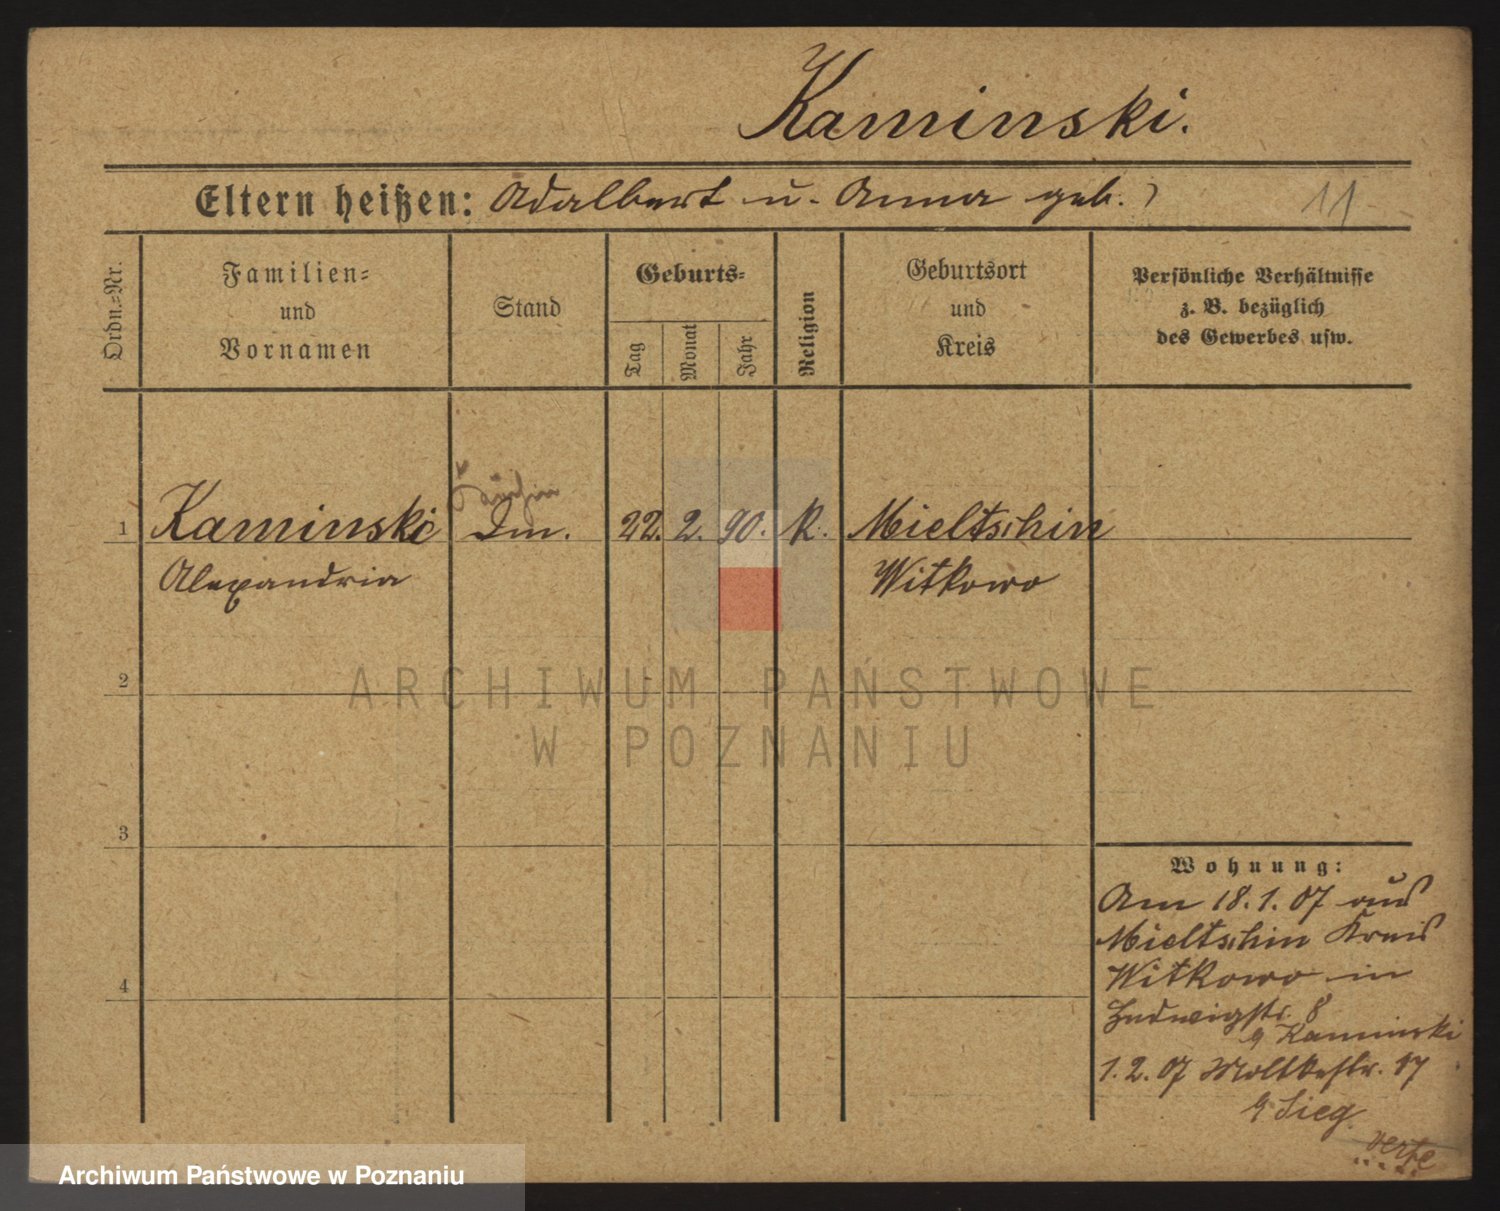 Kaminski.
Eltern heißen: Adalbert u. Anna geb. ?
11
Ordn.=Nr.
Familien=
und
Vornamen
Stand
Geburts=
Tag
Monat
Jahr
Religion
Geburtsort
und
Kreis
Persönliche Verhältnisse
z. B. bezüglich
des Gewerbes usw.
1 Kaminski 22. 2. 90. K. Mieltschin
Alexandria Witkowo
2
3
4
Wohnung:
Am 18.1.07 aus
Mieltschin Kreis
Witkowo in
Ludwigstr. 8
Kaminski
1.2.07 Moltkestr. 17
Sieg
verte
ARCHIWUM PAŃSTWOWE
W POZNANIU
Archiwum Państwowe w Poznaniu